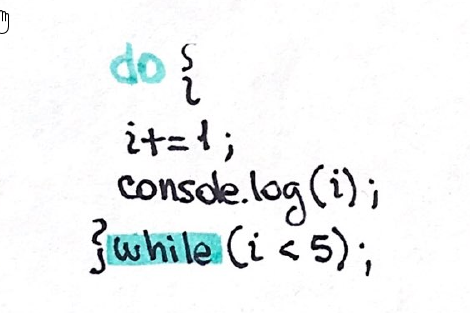 do {
i+=1;
console.log(i);
}while(i < 5);